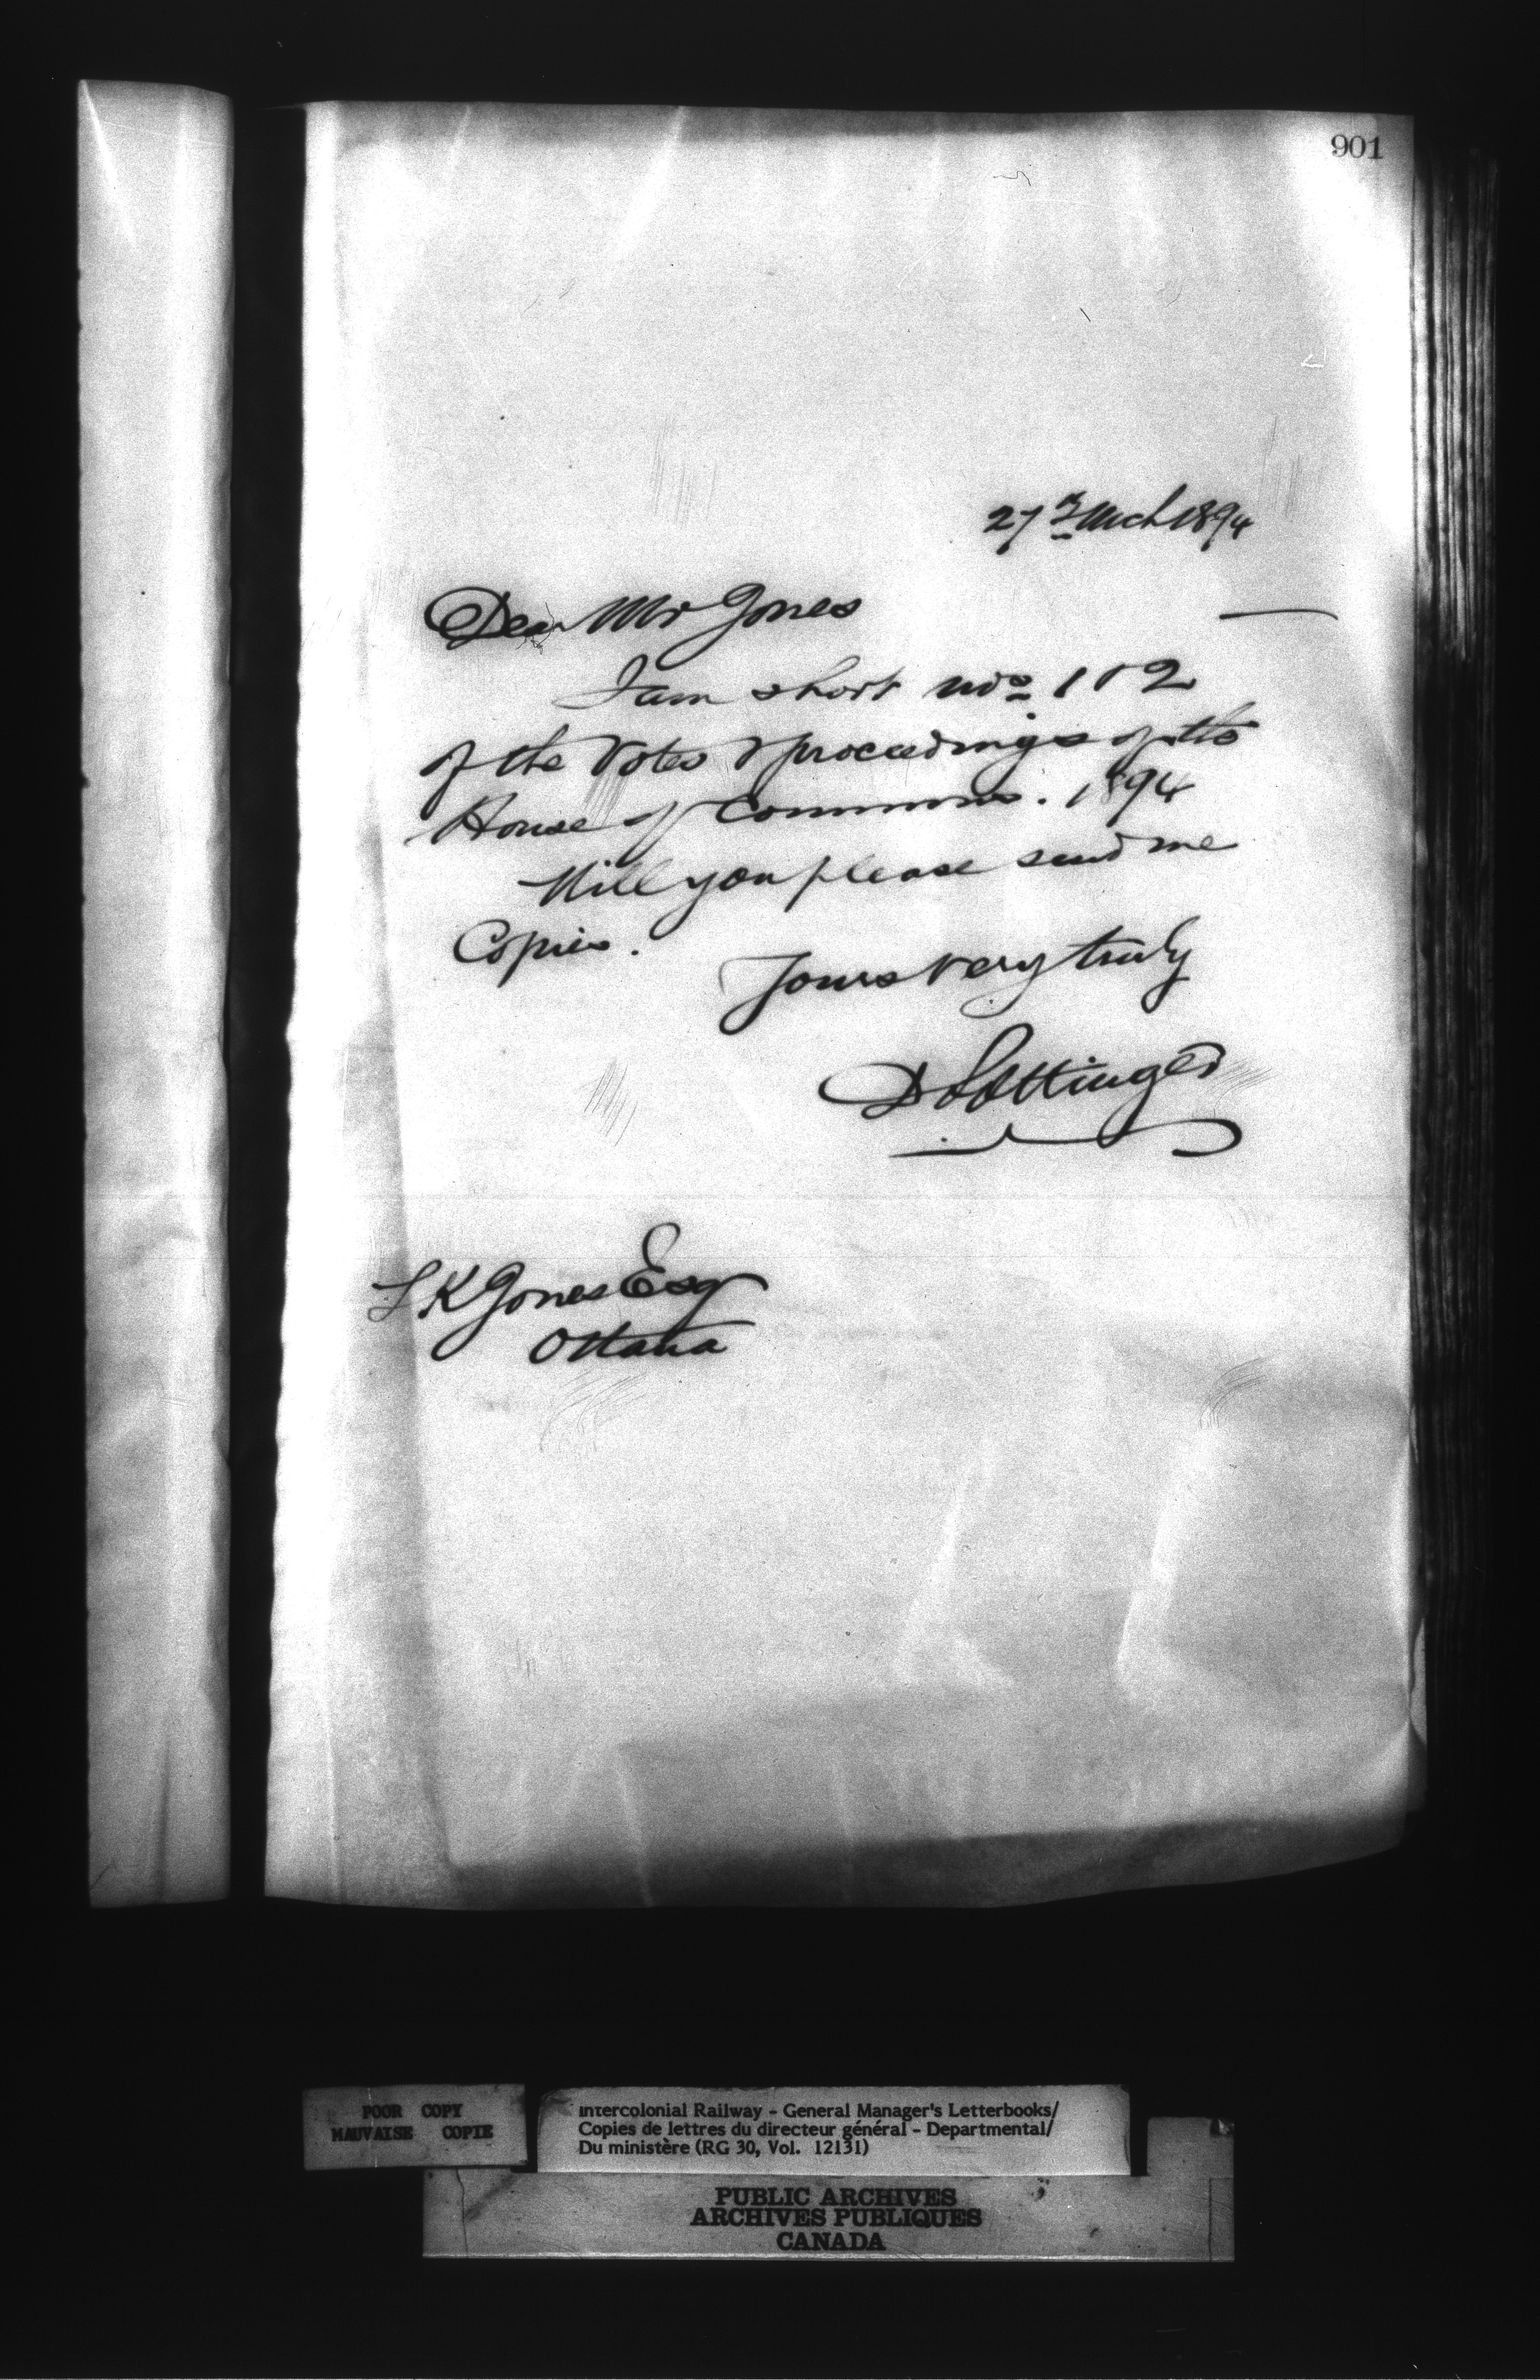 901
27th Mch 1894
Dear Mr Jones
I am short nos 1 & 2
of the Votes & proceedings of the
House of Commons. 1894
Will you please send me
Copies.
Yours very truly
D Pottinger
L K Jones Esq
Ottawa
POOR COPY
MAUVAISE COPIE
Intercolonial Railway - General Manager's Letterbooks/
Copies de lettres du directeur général - Departmental/
Du ministère (RG 30, Vol. 12131)
PUBLIC ARCHIVES
ARCHIVES PUBLIQUES
CANADA